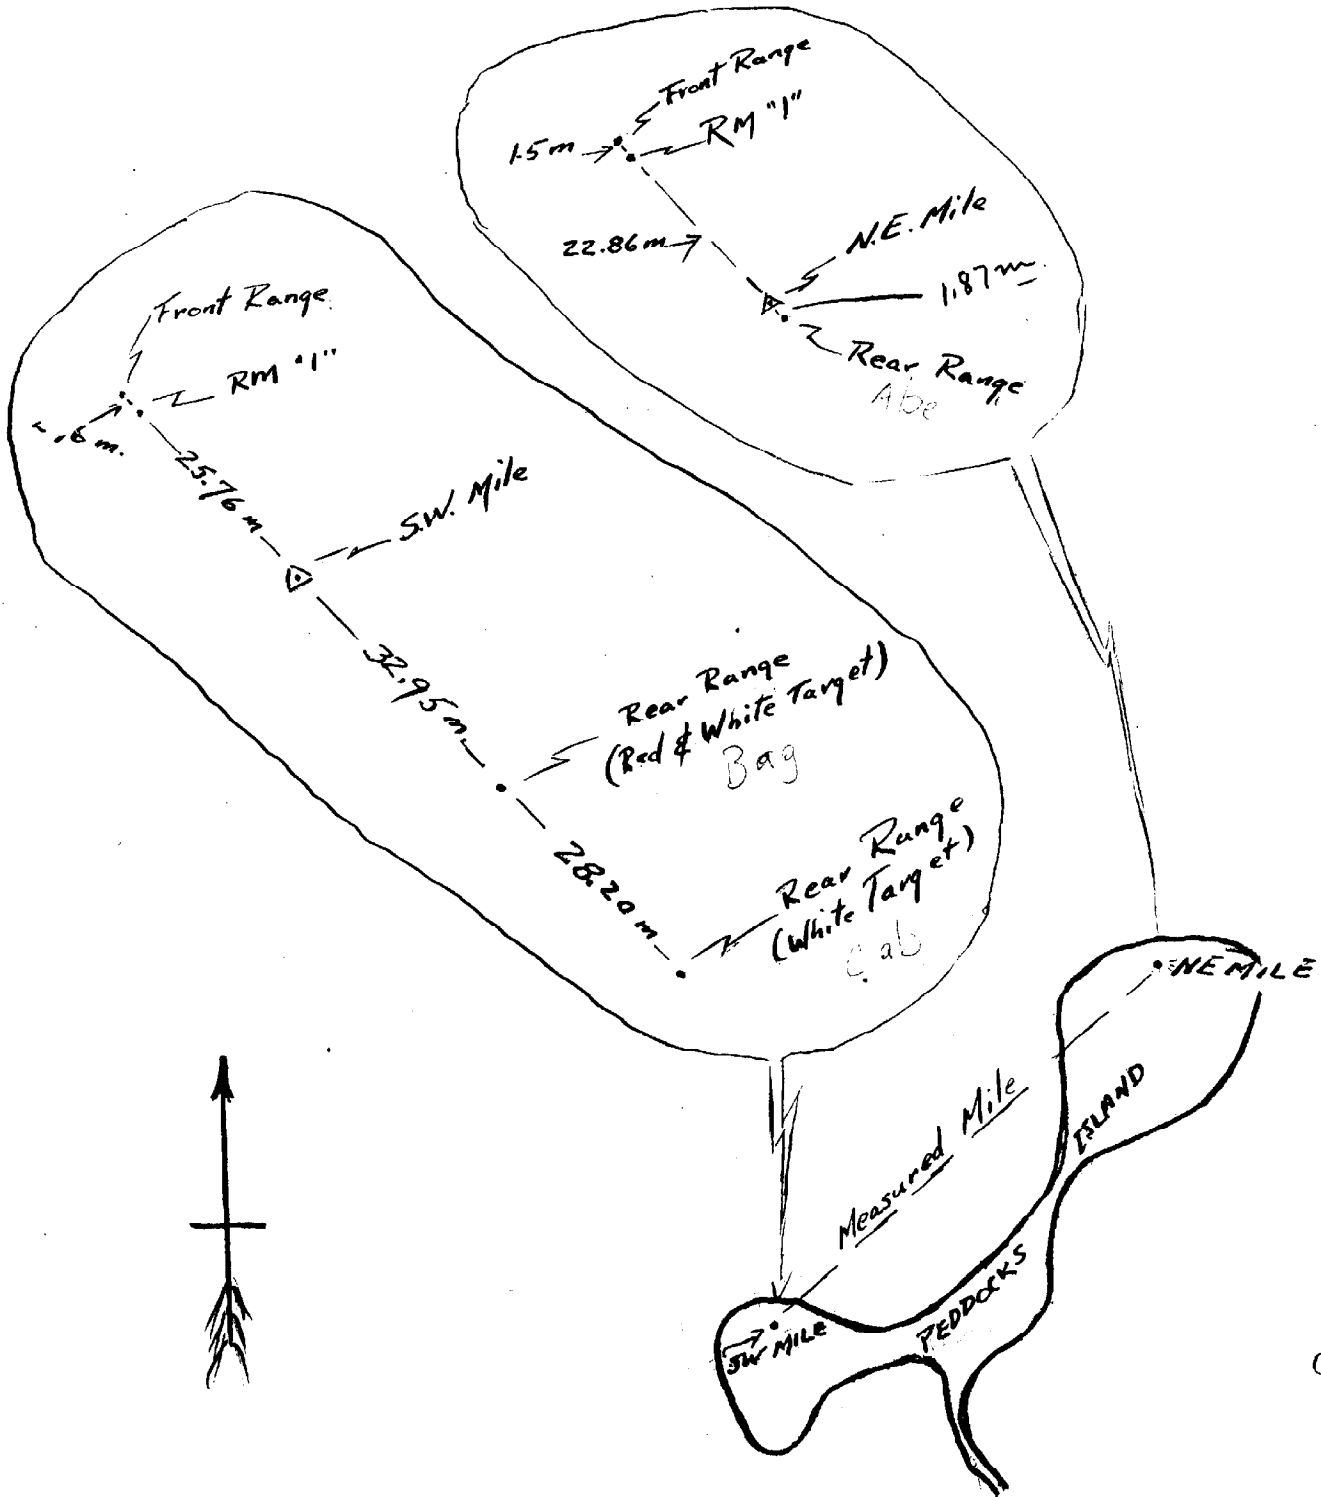 Front Range
1.5 m
RM "1"
22.86 m
N.E. Mile
1.87 m
Rear Range
Abe
Front Range
RM "1"
.6 m.
25.76 m
S.W. Mile
32.95 m.
Rear Range
(Red & White Target)
Bag
28.20 m
Rear Range
(White Target)
Cab
NE MILE
Measured Mile
ISLAND
PEDDOCKS
SW MILE